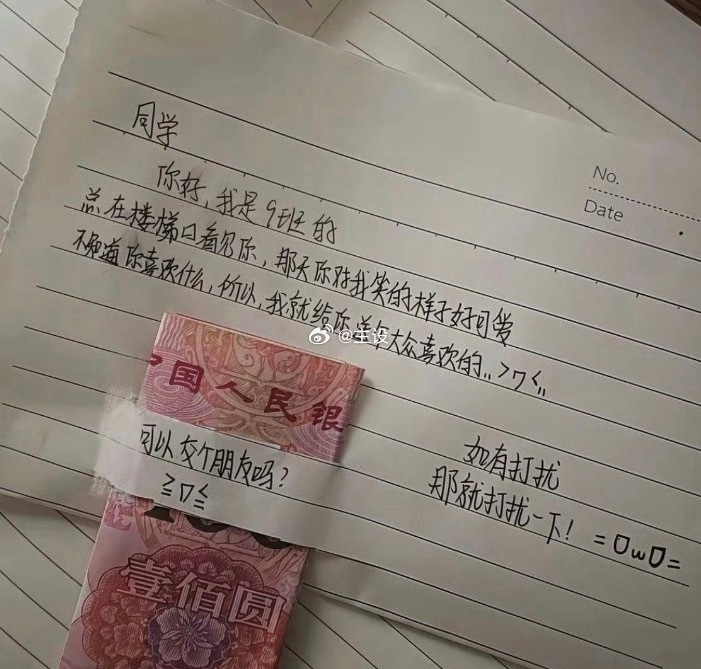 No.
Date
同学
你好，我是9班的
总在楼梯口看见你，那天你对我笑的样子好可爱
不知道你喜欢什么，所以，我就给你送个大众喜欢的,,>ㄇ<,,
@主设
中国人民银
可以交个朋友吗？
≧ㄇ≦
100
壹佰圆
如有打扰
那就打扰一下！=OwO=